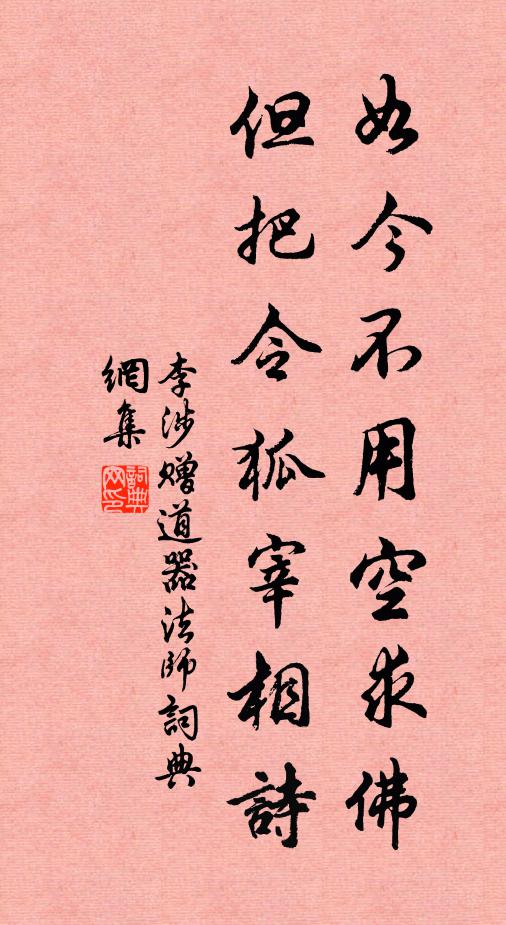 如今不用空求佛
但把令狐宰相詩
李涉贈道器法師詞典
網集
詞典網印